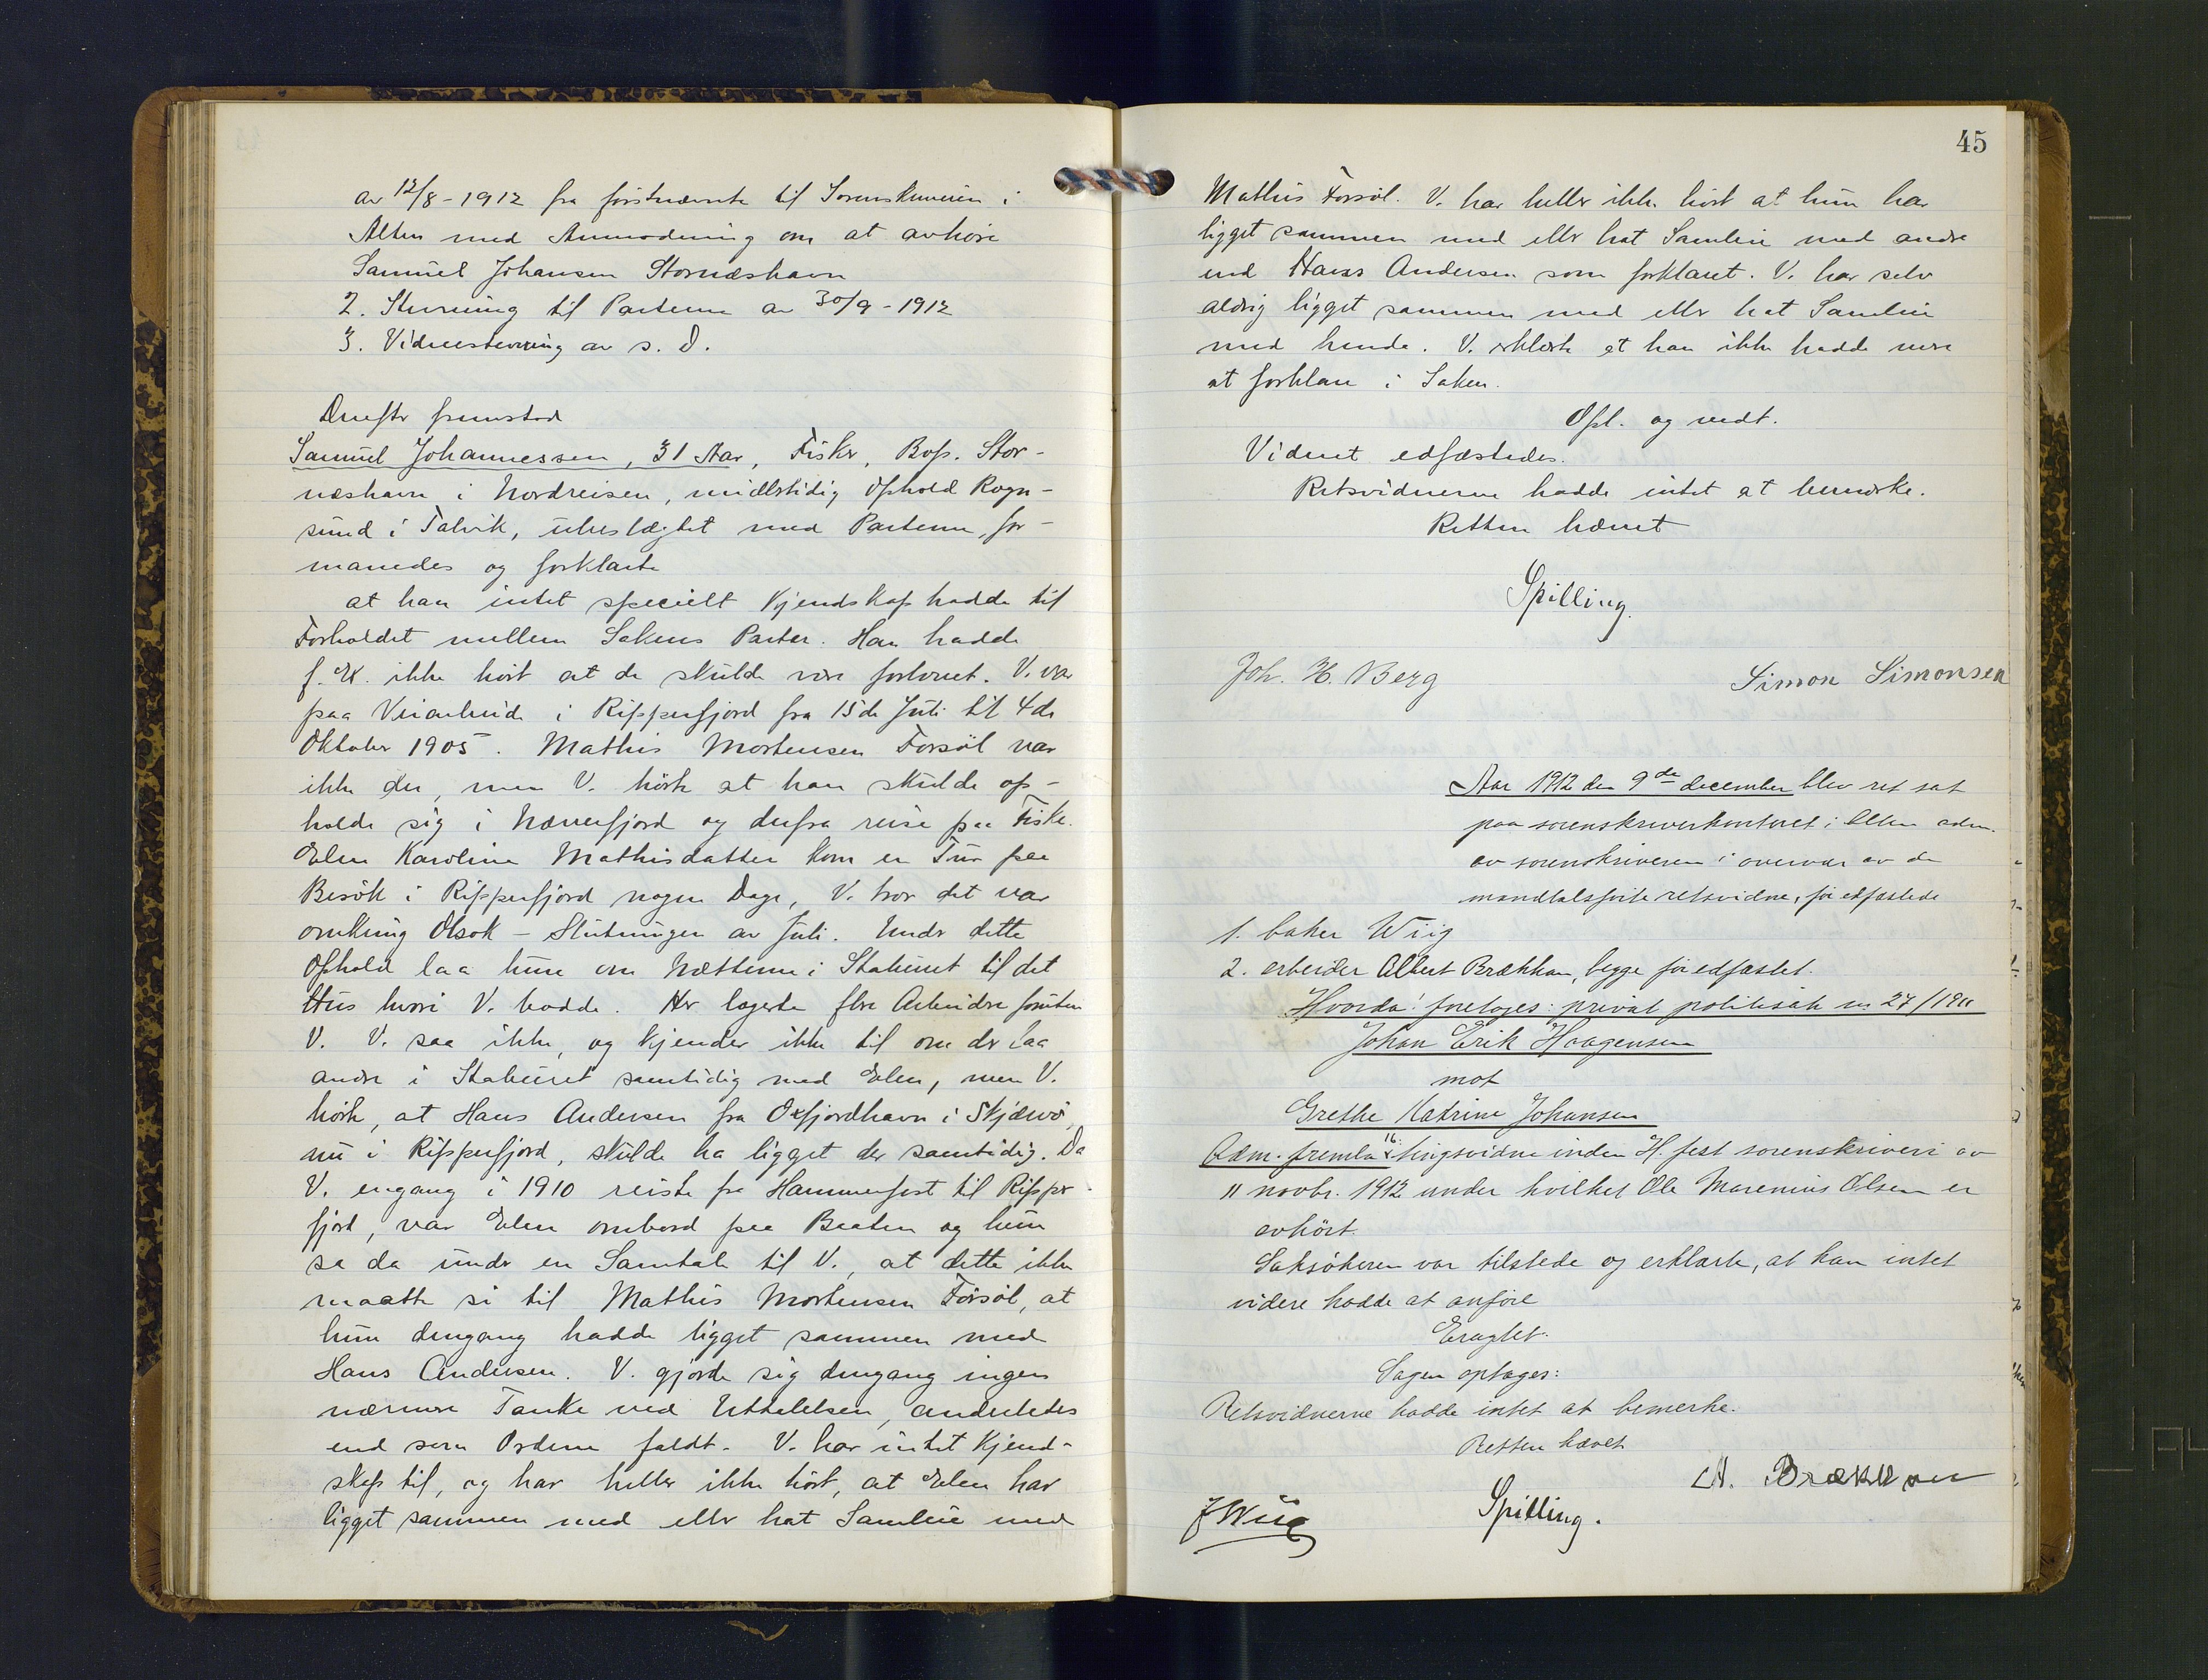 av 12/8-1912 fra förstnævnte til Sorenskriveren i
Alten med Anmodning om at avhöre
Samuel Johansen Stornæshavn
2. Stevning til Parterne av 30/9-1912
3. Vidnestevning av s. D.
Derefter fremstod
Samuel Johannessen, 31 Aar, Fisker, Bop. Stor-
næshavn i Nordreisen, midlertidig Ophold Rogn-
sund i Talvik, ubeslægtet med Parterne, for-
manedes og forklarte
at han intet specielt Kjendskap hadde til
Forholdet mellem Sakens Parter. Han hadde
f. Ex. ikke hört at de skulde være forlovet. V. var
paa Veiarbeide i Repperfjord fra 15de Juli til 4de
Oktober 1905. Mathis Mortensen Forsöl var
ikke der, men V. hörte at han skulde op-
holde sig i Næverfjord og derfra reise paa Fiske.
Elen Karoline Mathisdatter kom en Tur paa
Besök i Ripperfjord nogen Dage, V. tror det var
omkring Olsok - Slutningen av Juli. Under dette
Ophold laa hun om Nætterne i Staburet til det
Hus hvori V. bodde. Her logerte flere Arbeidere foruten
V. V. saa ikke, og kjender ikke til om der laa
andre i Staburet samtidig med Elen, men V.
hörte, at Hans Andersen fra Oxfjordhavn i Skjærvö,
nu i Ripperfjord, skulde ha ligget der samtidig. Da
V. engang i 1910 reiste fra Hammerfest til Ripper-
fjord, var Elen ombord paa Baaten og hun
sa da under en Samtale til V., at dette ikke
maatte si til Mathis Mortensen Forsöl, at
hun dengang hadde ligget sammen med
Hans Andersen. V. gjorde sig dengang ingen
nærmere Tanke ved Uttalelsen, anderledes
end som Ordene faldt. V. har intet Kjend-
skap til, og har heller ikke hört, at Elen har
ligget sammen med eller hat Samleie med
45
Mathis Forsöl. V. har heller ikke hört at hun har
ligget sammen med eller hat Samleie med andre
end Hans Andersen som forklaret. V. har selv
aldrig ligget sammen med eller hat Samleie
med hende. V. erklærte at han ikke hadde mere
at forklare i Saken.
Opl. og vedt.
Vidnet edfæstedes.
Retsvidnerne hadde intet at bemerke.
Retten hævet
Spilling.
Joh. H. Berg Simon Simonsen
Aar 1912 den 9de december blev ret sat
paa sorenskriverkontoret i Alten adm.
av sorenskriveren i overvær av de
mandtalsförte retsvidne, för edfæstede
1. baker Wiig
2. arbeider Albert Brækkan, begge för edfæstet.
Hvorda: foretoges: privat politisak nr 27/1911
Johan Erik Haagensen
mot
Grethe Katrine Johansen
Adm. fremla 16: tingsvidne inden H.fest sorenskriveri av
11 novbr. 1912 under hvilket Ole Marenius Olsen er
avhört.
Saksökeren var tilstede og erklærte, at han intet
videre hadde at anföre
Eragtet:
Sagen optages:
Retsvidnerne hadde intet at bemerke.
Retten hævet
A. Brækkan
J Wiig Spilling.